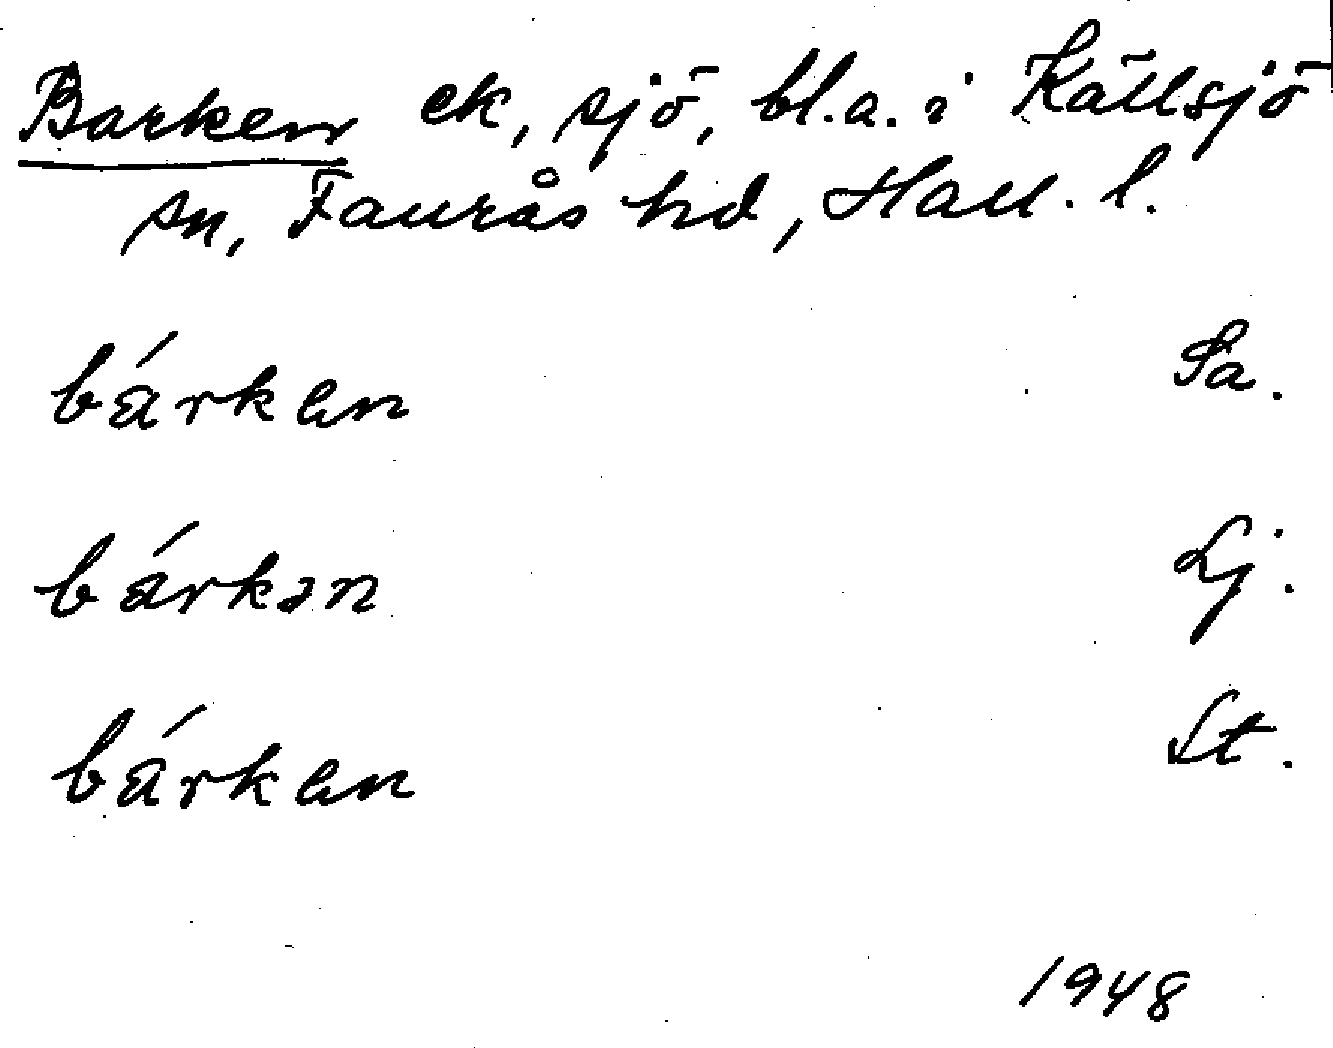 Barken ek, sjö, bl.a. i Källsjö
sn, Faurås hd, Hall. l.
bárken Sa.
bárkən Lj.
bárken St.
1948